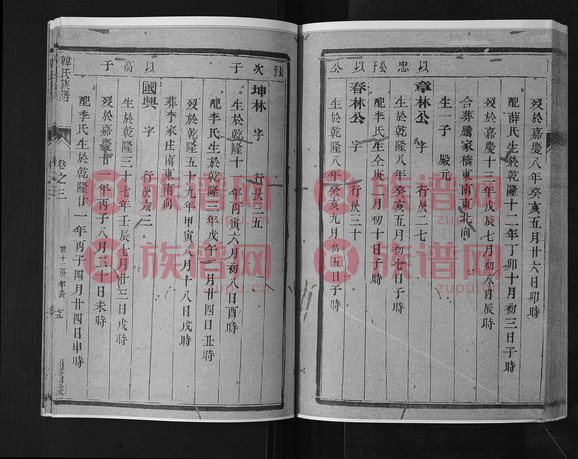 公 以 忠 公 子 以
歿於嘉慶八年癸亥五月廿六日卯時
配薛氏生於乾隆十二年丁卯十月初三日子時
歿於嘉慶十一年戊辰七月初八日辰時
合葬騰家橋東南東北向
生一子 殿元
章林公 字 行長二七
生於乾隆八年癸亥五月初七日子時
配李氏生仝庚八月初十日子時
春林公 字 行長三十
生於乾隆八年癸亥九月初五日子時
子 次 子 高 以
坤林 字 行長三五
生於乾隆十一年丙寅六月初八日酉時
配李氏生於乾隆三年戊午二月廿四日丑時
歿於乾隆五十九年甲寅八月十八日戌時
葬李家庄南東南向
國興 字 行長
生於乾隆三十七年壬辰七月廿三日戌時
歿於嘉慶廿一年丙子八月二十日未時
配李氏生於乾隆廿一年丙子四月廿四日申時
韓氏族譜
卷之三
第十二世年表
族谱网
族谱网
族谱网
族谱网